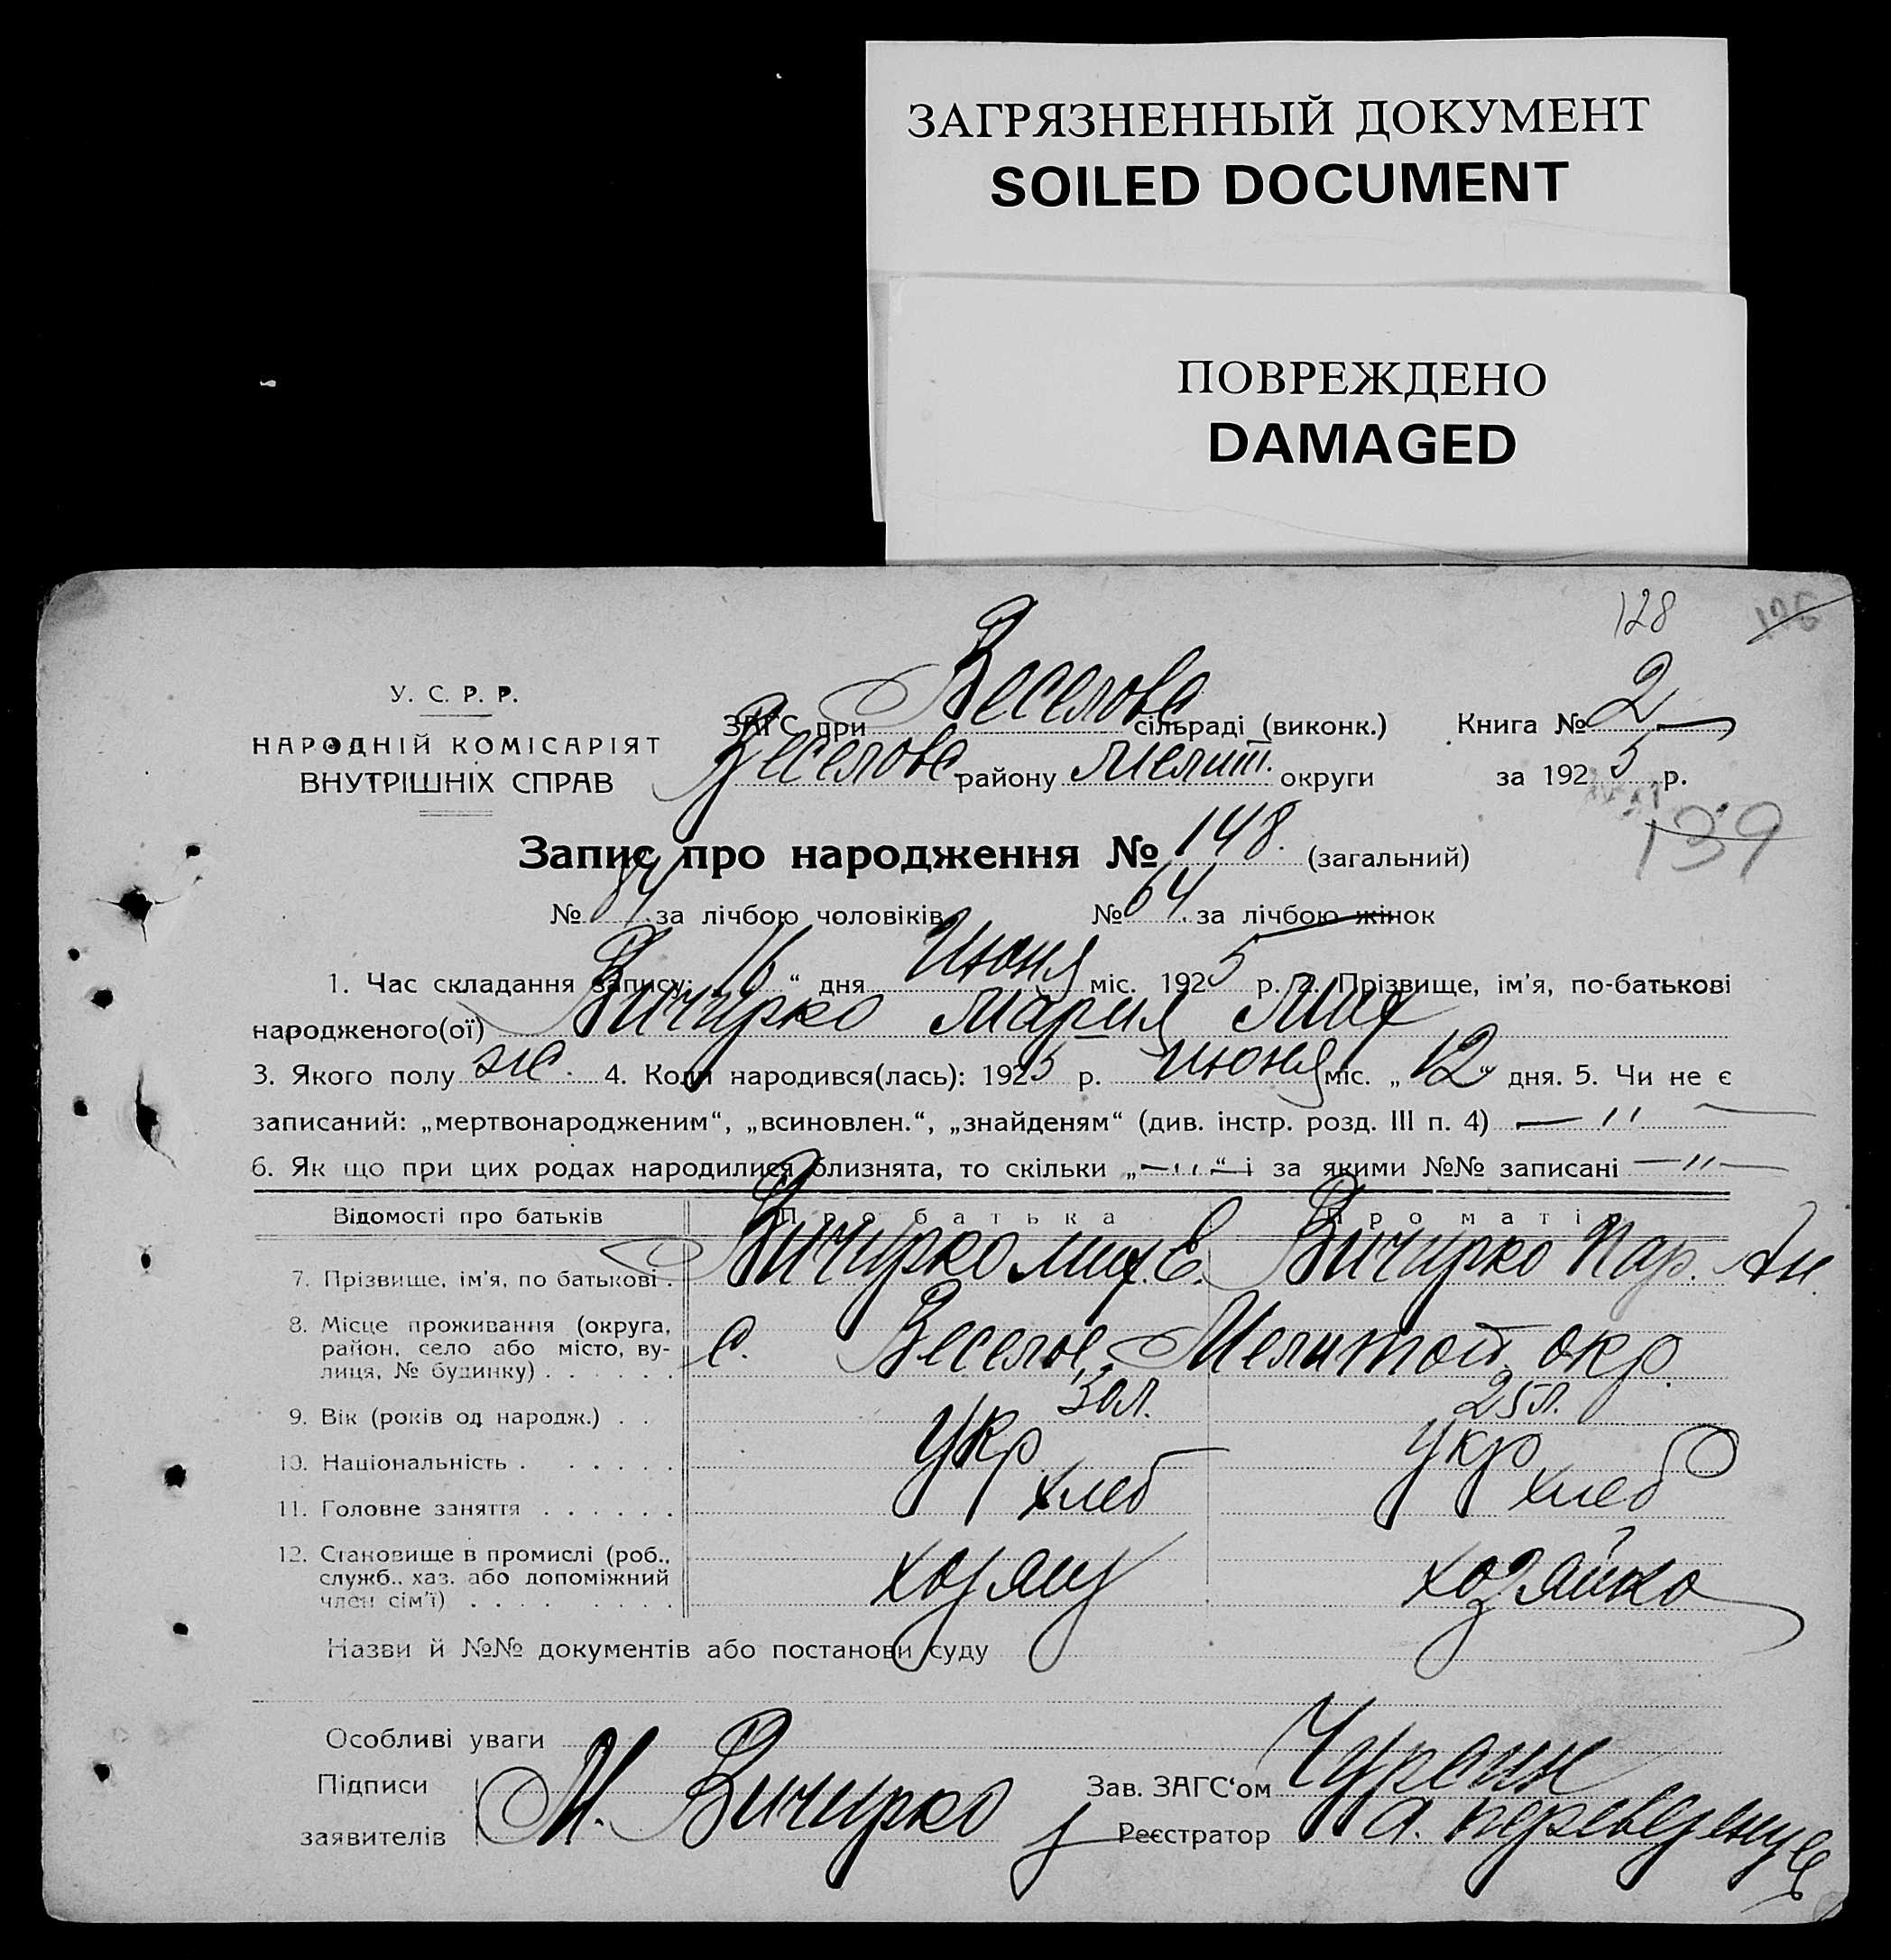 ЗАГРЯЗНЕННЫЙ ДОКУМЕНТ
SOILED DOCUMENT
ПОВРЕЖДЕНО
DAMAGED
128
У. С. Р. Р.
НАРОДНІЙ КОМІСАРІЯТ
ВНУТРІШНІХ СПРАВ
ЗАГС при Веселове сільраді (виконк.) Книга № 2
Веселове району Мелит. округи за 1925 р.
139
Запис про народження № 148. (загальний)
№ 84 за лічбою чоловіків № 64 за лічбою жінок
1. Час складання запису: 16 “ дня Июня міс. 1925 р. 2. Прізвище, ім’я, по-батькові
народженого(ої) Вичирко Мария Мих
3. Якого полу ж. 4. Коли народився(лась): 1925 р. июня міс. „ 12 “ дня. 5. Чи не є
записаний: „мертвонародженим“, „всиновлен.“, „знайденям“ (див. інстр. розд. III п. 4) — " —
6. Як що при цих родах народилися близнята, то скільки „— " —“ і за якими №№ записані — " —
Відомості про батьків Про батька Про матір
7. Прізвище, ім’я, по батькові . Вичирко Мих. Е. Вичирко Пар. Ан.
8. Місце проживання (округа, район, село або місто, вулиця, № будинку) . . . . . . с. Веселое, Мелитоп. окр.
9. Вік (років од народж.) . . 30 л. 25 л.
10. Національність . . . . . . Укр Укр
11. Головне заняття . . . . . . хлеб хлеб
12. Становище в промислі (роб., служб., хаз. або допоміжний член сім’ї) . . . . . . . . хозяин хозяйка
Назви й №№ документів або постанови суду
Особливі уваги
Підписи заявителів М. Вичирко
Зав. ЗАГС‘ом Чурсин
Реєстратор А.